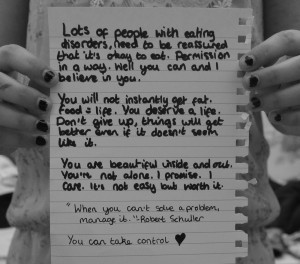 Lots of people with eating
disorders, need to be reassured
that it's okay to eat. Permission
in a way. Well you can and I
believe in you.
You will not instantly get fat.
Food = life. You deserve a life.
Don't give up, things will get
better even if it doesn't seem
like it.
You are beautiful inside and out.
You're not alone. I promise. I
care. It's not easy but worth it.
"When you can't solve a problem,
manage it."-Robert Schuller
You can take control ♥